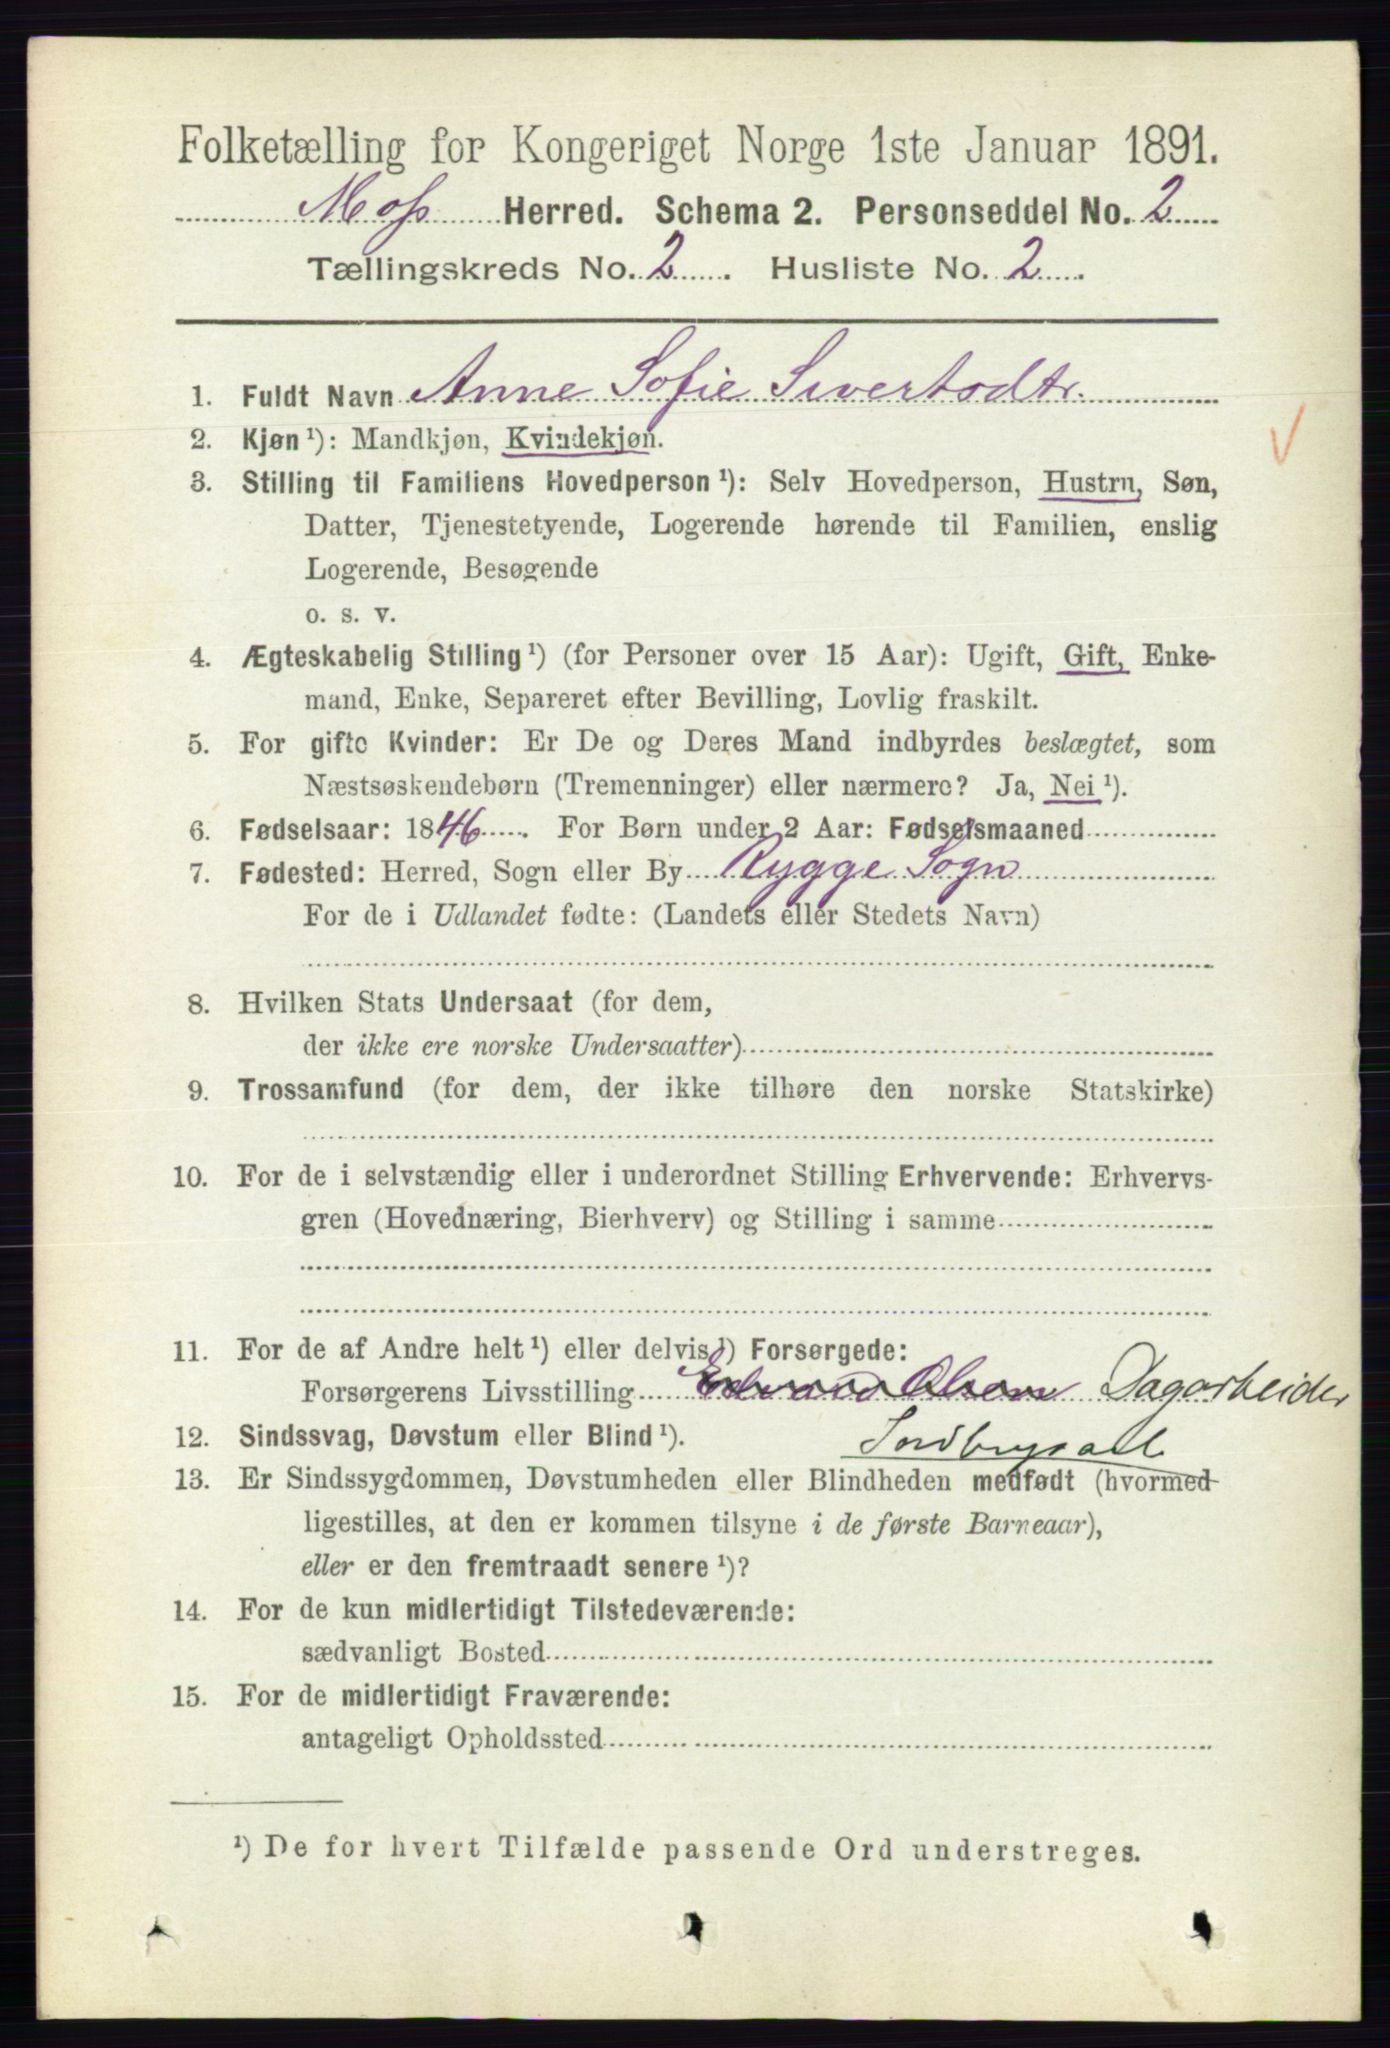 Folketælling for Kongeriget Norge 1ste Januar 1891.
Moss Herred. Schema 2. Personseddel No. 2
Tællingskreds No. 2. Husliste No. 2.
1. Fuldt Navn Anne Sofie Sivertsdtr.
2. Kjøn ¹): Mandkjøn, Kvindekjøn.
3. Stilling til Familiens Hovedperson ¹): Selv Hovedperson, Hustru, Søn,
Datter, Tjenestetyende, Logerende hørende til Familien, enslig
Logerende, Besøgende
o. s. v.
4. Ægteskabelig Stilling ¹) (for Personer over 15 Aar): Ugift, Gift, Enke-
mand, Enke, Separeret efter Bevilling, Lovlig fraskilt.
5. For gifte Kvinder: Er De og Deres Mand indbyrdes beslægtet, som
Næstsøskendebørn (Tremenninger) eller nærmere? Ja, Nei ¹).
6. Fødselsaar: 1846. For Børn under 2 Aar: Fødselsmaaned
7. Fødested: Herred, Sogn eller By Rygge Sogn
For de i Udlandet fødte: (Landets eller Stedets Navn)
8. Hvilken Stats Undersaat (for dem,
der ikke ere norske Undersaatter)
9. Trossamfund (for dem, der ikke tilhøre den norske Statskirke)
10. For de i selvstændig eller i underordnet Stilling Erhvervende: Erhvervs-
gren (Hovednæring, Bierhverv) og Stilling i samme
11. For de af Andre helt ¹) eller delvis ¹) Forsørgede:
Forsørgerens Livsstilling Edvard Olsen Dagarbeider
12. Sindssvag, Døvstum eller Blind ¹). Jordbrugsarb
13. Er Sindssygdommen, Døvstumheden eller Blindheden medfødt (hvormed-
ligestilles, at den er kommen tilsyne i de første Barneaar),
eller er den fremtraadt senere ¹)?
14. For de kun midlertidigt Tilstedeværende:
sædvanligt Bosted
15. For de midlertidigt Fraværende:
antageligt Opholdssted
¹) De for hvert Tilfælde passende Ord understreges.